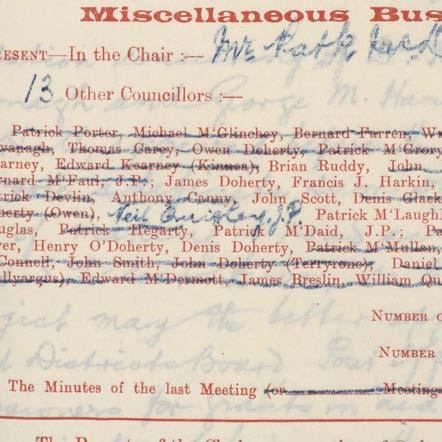 Miscellaneous Bus
RESENT—In the Chair :—
13 Other Councillors :—
Patrick Porter, Michael M'Glinchey, Bernard Farren, W
vanagh, Thomas Carey, Owen Doherty, Patrick M'Grory
arney, Edward Kearney (Kinnea), Brian Ruddy, John
rnard M'Faul, J.P.; James Doherty, Francis J. Harkin,
trick Devlin, Anthony Canny, John Scott, Denis Glack
herty (Owen), Neil Buckley, J.P. Patrick M'Laugh
uglas, Patrick Hegarty, Patrick M'Daid, J.P.; Pa
ver, Henry O'Doherty, Denis Doherty, Patrick M'Mullan,
Connell, John Smith, John Doherty (Terryrone), Daniel
llyargus), Edward M'Dermott, James Breslin, William Qu
Number o
Number
The Minutes of the last Meeting (or Meeting